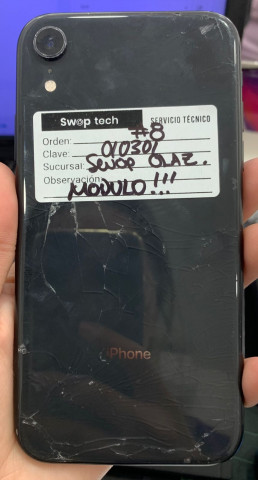 Swop tech SERVICIO TÉCNICO
Orden: #8
Clave: 010301
Sucursal: Swop
Observación:
MÓDULO!!!
iPhone